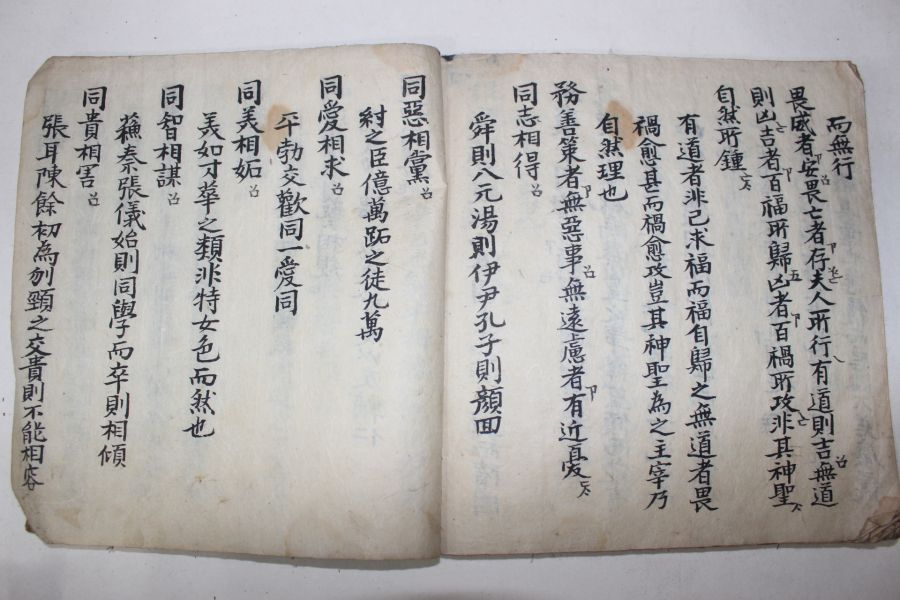 而無行
畏威者安畏亡者存夫人所行有道則吉無道
則凶吉者百福所歸凶者百禍所攻非其神聖
自然所鍾
有道者非己求福而福自歸之無道者畏
禍愈甚而禍愈攻豈其神聖為之主宰乃
自然理也
務善策者無惡事無遠慮者有近憂
同志相得
舜則八元湯則伊尹孔子則顔回
同惡相黨
紂之臣億萬跖之徒九萬
同愛相求
平勃交歡同一愛同
同美相妬
美如才華之類非特女色而然也
同智相謀
蘇秦張儀始則同學而卒則相傾
同貴相害
張耳陳餘初為刎頸之交貴則不能相容